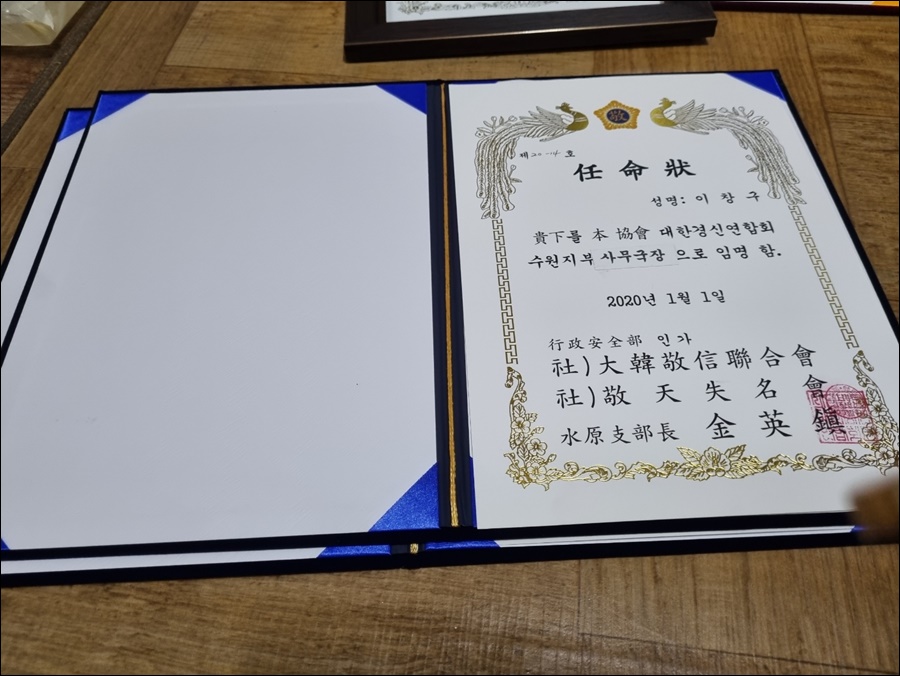 敬
제 20-14 호
任命狀
성명: 이 창 구
貴下를 本 協會 대한경신연합회
수원지부 사무국장 으로 임명 함.
2020년 1월 1일
行政安全部 인가
社)大韓敬信聯合會
社)敬天失名會
水原支部長 金英鎭